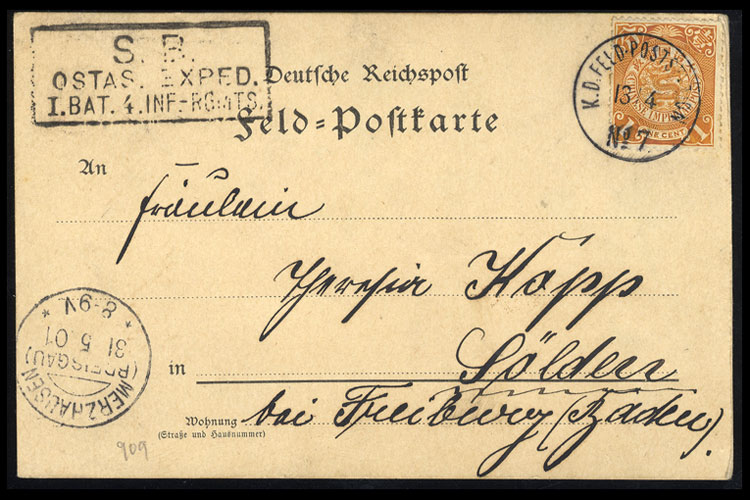 S. B.
OSTAS. EXPED.
I. BAT. 4. INF.-RGMTS.
K. D. FELD-POSTS
13 4
No 7.
IMPE
ONE CENT
1 1
Deutsche Reichspost
Feld-Postkarte
An
Fräulein
Theresia Kopp
in Sölden
Wohnung bei Freiburg (Baden).
(Straße und Hausnummer)
MERZHAUSEN
(BREISGAU)
31 5 01
* 8-9V *
909